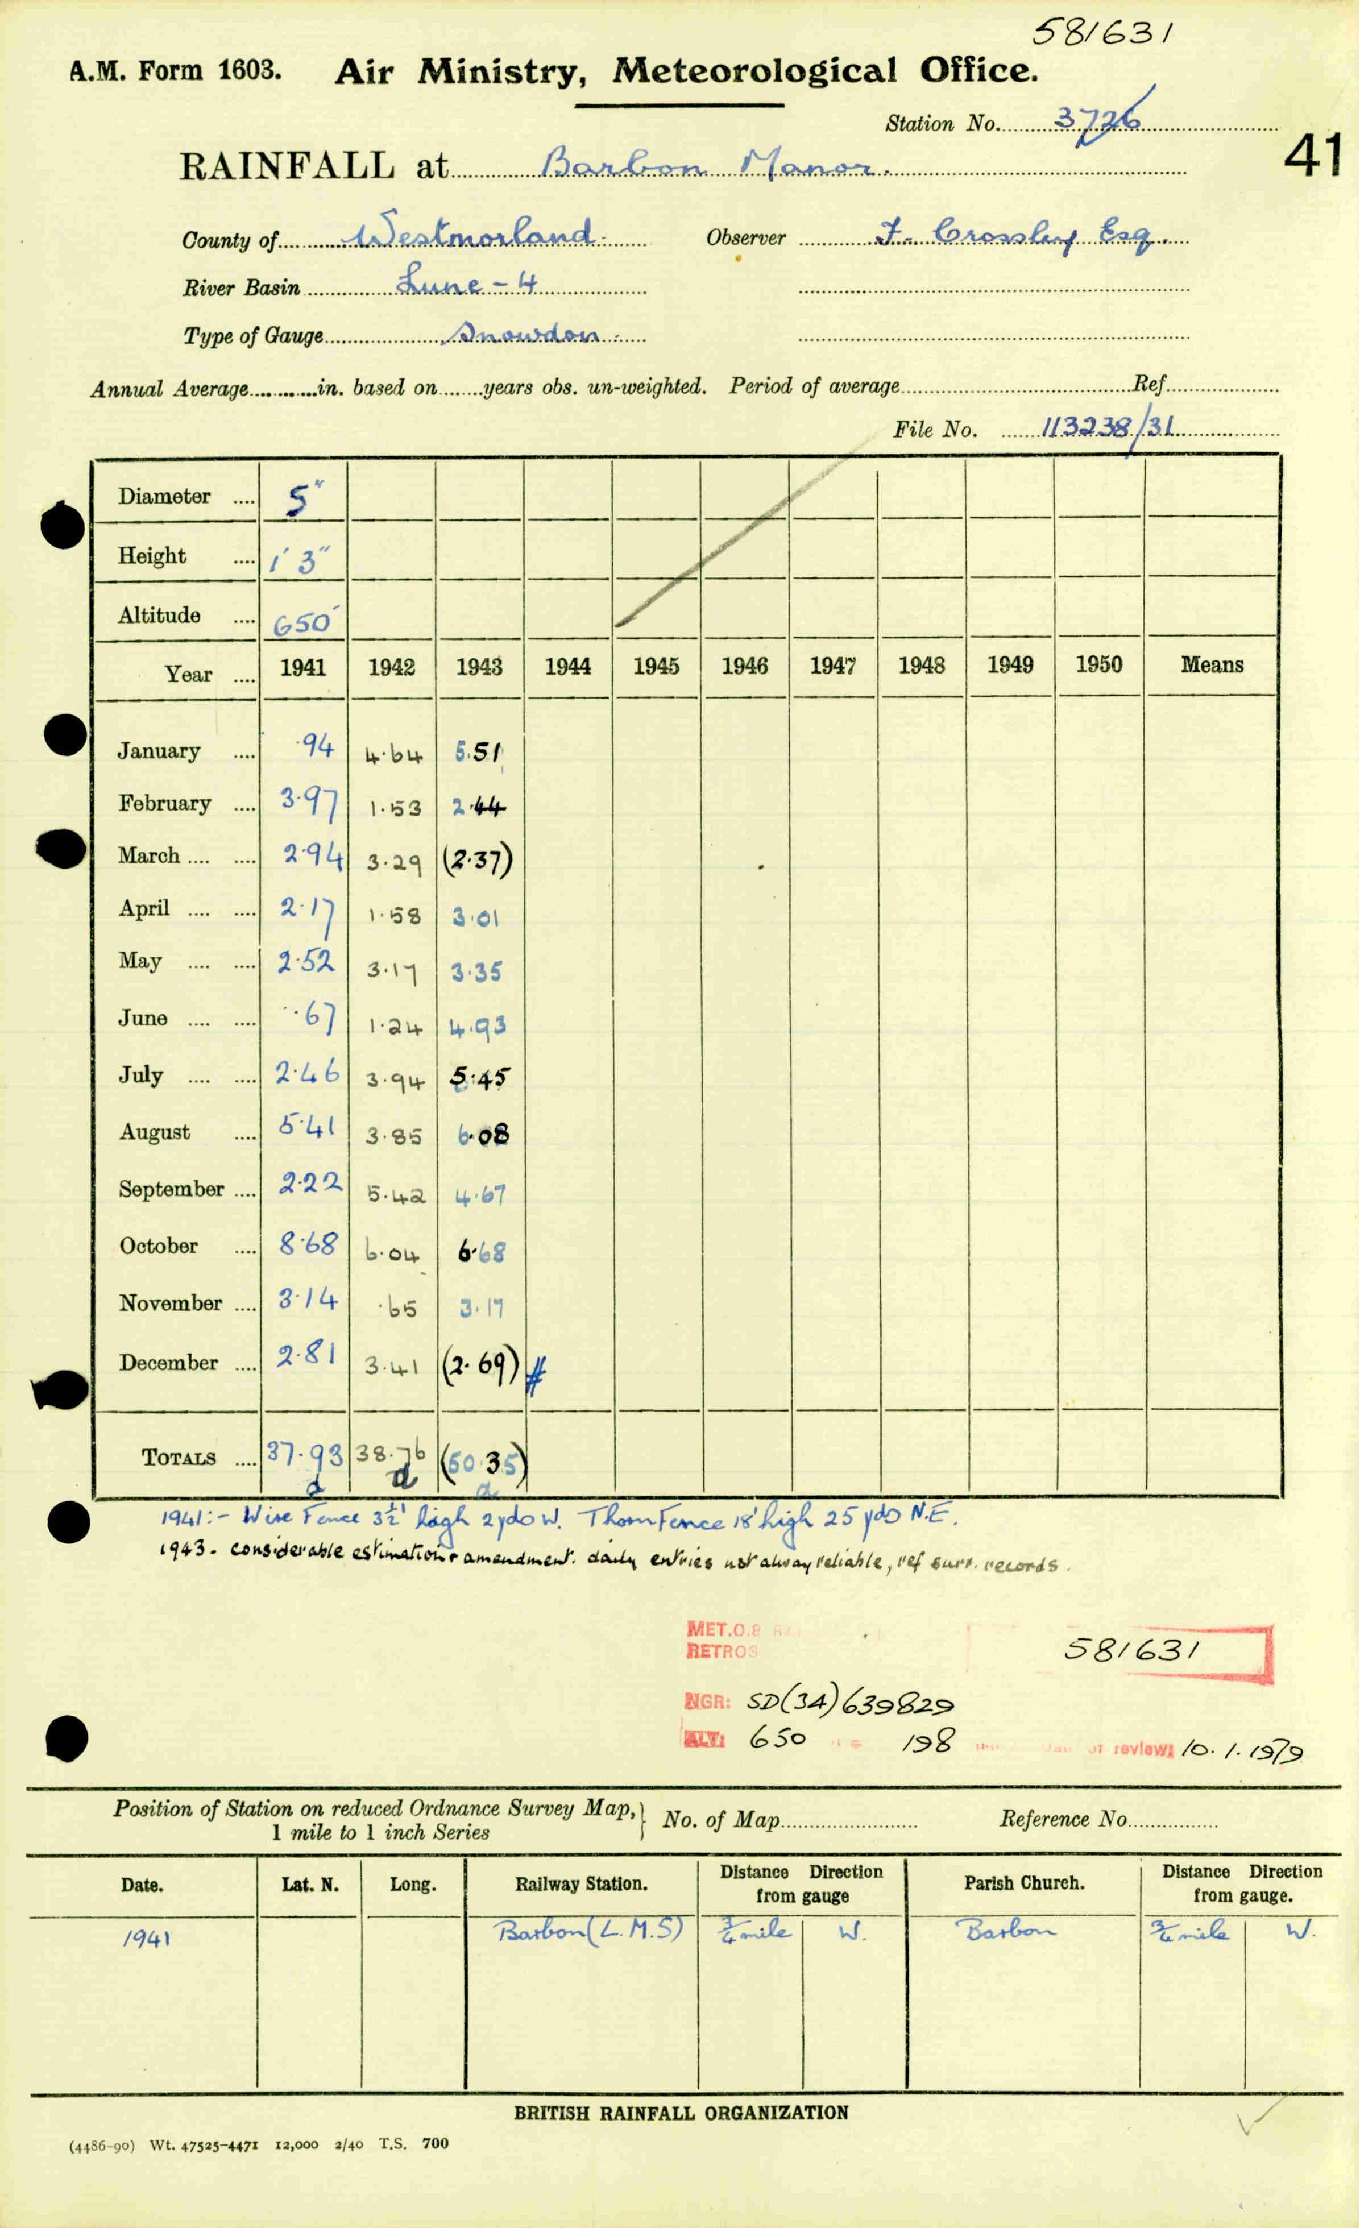 581631
A.M. Form 1603. Air Ministry, Meteorological Office.
Station No. 3726
41
RAINFALL at Barbon Manor.
County of Westmorland. Observer F. Crossley Esq.
River Basin Lune - 4
Type of Gauge Snowdon.
Annual Average in. based on years obs. un-weighted. Period of average Ref.
File No. 113238/31
Diameter .... 5"
Height .... 1' 3"
Altitude .... 650'
Year .... 1941 1942 1943 1944 1945 1946 1947 1948 1949 1950 Means
January .... ·94 4·64 5.51
February .... 3·97 1·53 2·44
March .... .... 2·94 3·29 (2·37)
April .... .... 2·17 1·58 3·01
May .... .... 2·52 3·17 3·35
June .... .... ·67 1·24 4·93
July .... .... 2·46 3·94 5·45
August .... 5·41 3·85 6·08
September .... 2·22 5·42 4·67
October .... 8·68 6·04 6·68
November .... 3·14 ·65 3·17
December .... 2·81 3·41 (2·69) #
TOTALS .... 37·93 38·76 (50·35)
d d d
1941:- Wire Fence 3½' high 2 yds W. Thorn Fence 18' high 25 yds N.E.
1943 - considerable estimation & amendment. daily entries not alway reliable, ref surr. records.
MET.O.8
RETROS 581631
NGR: SD(34)639829
ALT: 650 198 of review: 10.1.1979
Position of Station on reduced Ordnance Survey Map, } No. of Map Reference No.
1 mile to 1 inch Series
Date. Lat. N. Long. Railway Station. Distance from gauge Direction Parish Church. Distance Direction from gauge.
1941 Barbon (L.M.S) ¾ mile W. Barbon ¾ mile W.
BRITISH RAINFALL ORGANIZATION
(4486-90) Wt. 47525-4471 12,000 2/40 T.S. 700